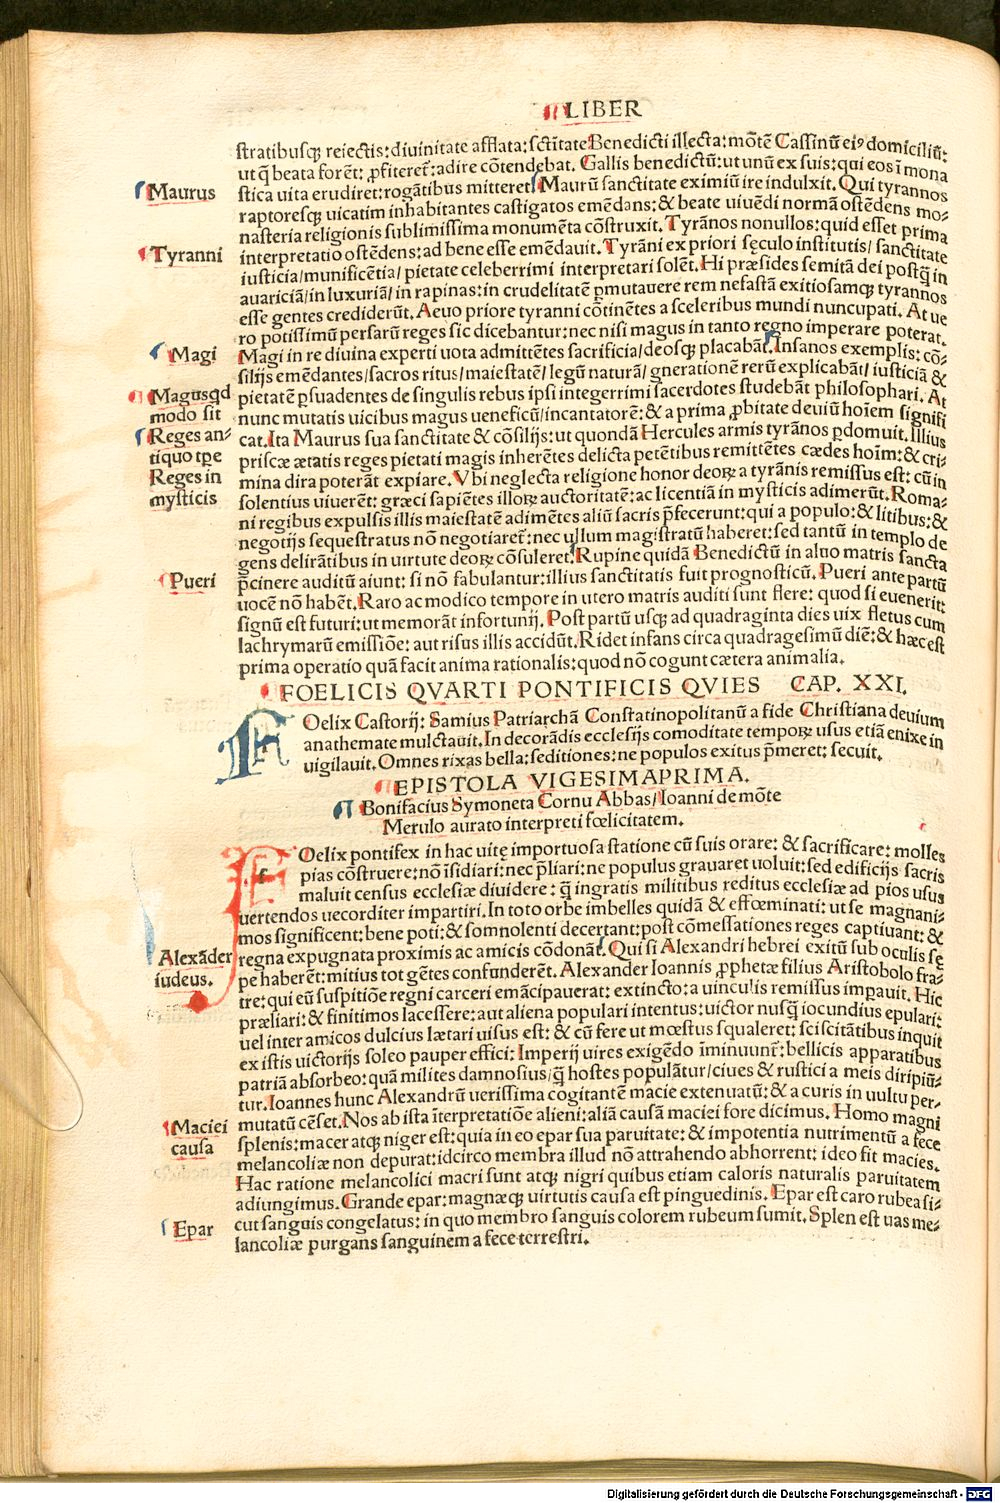 LIBER
stratibusqꝫ reiectis: diuinitate afflata: sc̃titate Benedicti illecta: mõtẽ Cassinũ eiꝰ domiciliũ:
ut q̃ beata forẽt: ꝓfiterẽt̃: adire cõtendebat. Gallis benedictũ: ut unũ ex suis: qui eos ĩ mona
Maurus
stica uita erudiret: rogãtibus mitteret: Maurũ sanctitate eximiũ ire indulxit. Qui tyrannos
raptoresqꝫ uicatim inhabitantes castigatos emẽdans: & beate uiuẽdi normã ostẽdens mo-
nasteria religionis sublimissima monumẽta cõstruxit. Tyrãnos nonullos: quid esset prima
Tyranni
interpretatio ostẽdens: ad bene esse emẽdauit. Tyrãni ex priori sęculo institutis/ sanctitate
iusticia/ munificẽtia/ pietate celeberrimi interpretari solẽt. Hi præsides semitã dei postq̃ in
auariciã/ in luxuriã/ in rapinas: in crudelitatẽ ꝑmutauere rem nefastã exitiosamqꝫ tyrannos
esse gentes crediderũt. Aeuo priore tyranni cõtinẽtes a sceleribus mundi nuncupati. At ue
ro potissimũ persarũ reges sic dicebantur: nec nisi magus in tanto regno imperare poterat.
Magi
Magi in re diuina experti uota admittẽtes sacrificia/ deosqꝫ placabãt. Insanos exemplis: cõ-
silijs emẽdantes/ sacros ritus/ maiestatẽ/ legũ naturã/ gnerationẽ rerũ explicabãt/ iusticiã &
Magus qd
pietatẽ ꝑsuadentes de singulis rebus ipsi integerrimi sacerdotes studebãt philosophari. At
modo sit
nunc mutatis uicibus magus ueneficũ/ incantatorẽ: & a prima ꝓbitate deuiũ hoĩem signifi
Reges an-
cat. Ita Maurus sua sanctitate & cõsilijs: ut quondã Hercules armis tyrãnos ꝑdomuit. Illius
tiquo tpe
priscæ ætatis reges pietati magis inherẽtes delicta petẽtibus remittẽtes cædes hoĩm: & cri-
Reges in
mina dira poterãt expiare. Vbi neglecta religione honor deoꝝ a tyrãnis remissus est: cũ in
mysticis
solentius uiuerẽt: græci sapiẽtes illoꝝ auctoritatẽ: ac licentiã in mysticis adimerũt. Roma-
ni regibus expulsis illis maiestatẽ adimẽtes aliũ sacris p̃fecerunt: qui a populo: & litibus: &
negotijs sequestratus nõ negotiaret̃: nec ullum magistratũ haberet: sed tantũ in templo de
gens delirãtibus in uirtute deoꝝ cõsuleret. Rupine quidã Benedictũ in aluo matris sancta
Pueri
p̃cinere auditũ aiunt: si nõ fabulantur: illius sanctitatis fuit prognosticũ. Pueri ante partũ
uocẽ nõ habẽt. Raro ac modico tempore in utero matris auditi sunt flere: quod si euenerit:
signũ est futuri: ut memorãt infortunij. Post partũ usqꝫ ad quadraginta dies uix fletus cum
lachrymarũ emissiõe: aut risus illis accidũt. Ridet infans circa quadragesimũ diẽ: & hæc est
prima operatio quã facit anima rationalis: quod nõ cogunt cætera animalia.
FOELICIS QVARTI PONTIFICIS QVIES CAP. XXI.
FOelix Castorij: Samius Patriarchã Constatinopolitanũ a fide Christiana deuium
anathemate mulctauit. In decorãdis ecclesijs comoditate tempoꝝ usus etiã enixe in
uigilauit. Omnes rixas bella: seditiones: ne populos exitus p̃meret: secuit.
EPISTOLA VIGESIMAPRIMA.
Bonifacius Symoneta Cornu Abbas/ Ioanni de mõte
Merulo aurato interpreti fœlicitatem.
FOelix pontifex in hac uitę importuosa statione cũ suis orare: & sacrificare: molles
pias cõstruere: nõ ĩsidiari: nec p̃liari: ne populus grauaret uoluit: sed edificijs sacris
maluit census ecclesiæ diuidere: q̃ ingratis militibus reditus ecclesiæ ad pios usus
uertendos uecorditer impartiri. In toto orbe imbelles quidã & effœminati: ut se magnani-
mos significent: bene poti: & somnolenti decertant: post cõmessationes reges captiuant: &
Alexãder
regna expugnata proximis ac amicis cõdonãt. Qui si Alexandri hebrei exitũ sub oculis sę
iudeus.
pe haberẽt: mitius tot gẽtes confunderẽt. Alexander Ioannis ꝓphetæ filius Aristobolo fra-
tre: qui eũ suspitiõe regni carceri emãcipauerat: extincto: a uinculis remissus imꝑauit. Hic
præliari: & finitimos lacessere: aut aliena populari intentus: uictor nusq̃ iocundius epulari:
uel inter amicos dulcius lætari uisus est: & cũ fere ut mœstus squaleret: sciscitãtibus inquit
ex istis uictorijs soleo pauper effici: Imperij uires exigẽdo ĩminuunt̃: bellicis apparatibus
patriã absorbeo: quã milites damnosius/ q̃ hostes populãtur/ ciues & rustici a meis diripiũ-
tur. Ioannes hunc Alexandrũ uerissima cogitantẽ macie extenuatũ: & a curis in uultu per-
Maciei
mutatũ cẽset. Nos ab ista ĩterpretatiõe alieni: aliã causã maciei fore dicimus. Homo magni
causa
splenis: macer atqꝫ niger est: quia in eo epar sua paruitate: & impotentia nutrimentũ a fece
melancoliæ non depurat: idcirco membra illud nõ attrahendo abhorrent: ideo fit macies.
Hac ratione melancolici macri sunt atqꝫ nigri quibus etiam caloris naturalis paruitatem
adiungimus. Grande epar: magnæqꝫ uirtutis causa est pinguedinis. Epar est caro rubea si-
Epar
cut sanguis congelatus: in quo membro sanguis colorem rubeum sumit. Splen est uas me-
lancoliæ purgans sanguinem a fece terrestri.
Digitalisierung gefördert durch die Deutsche Forschungsgemeinschaft - DFG